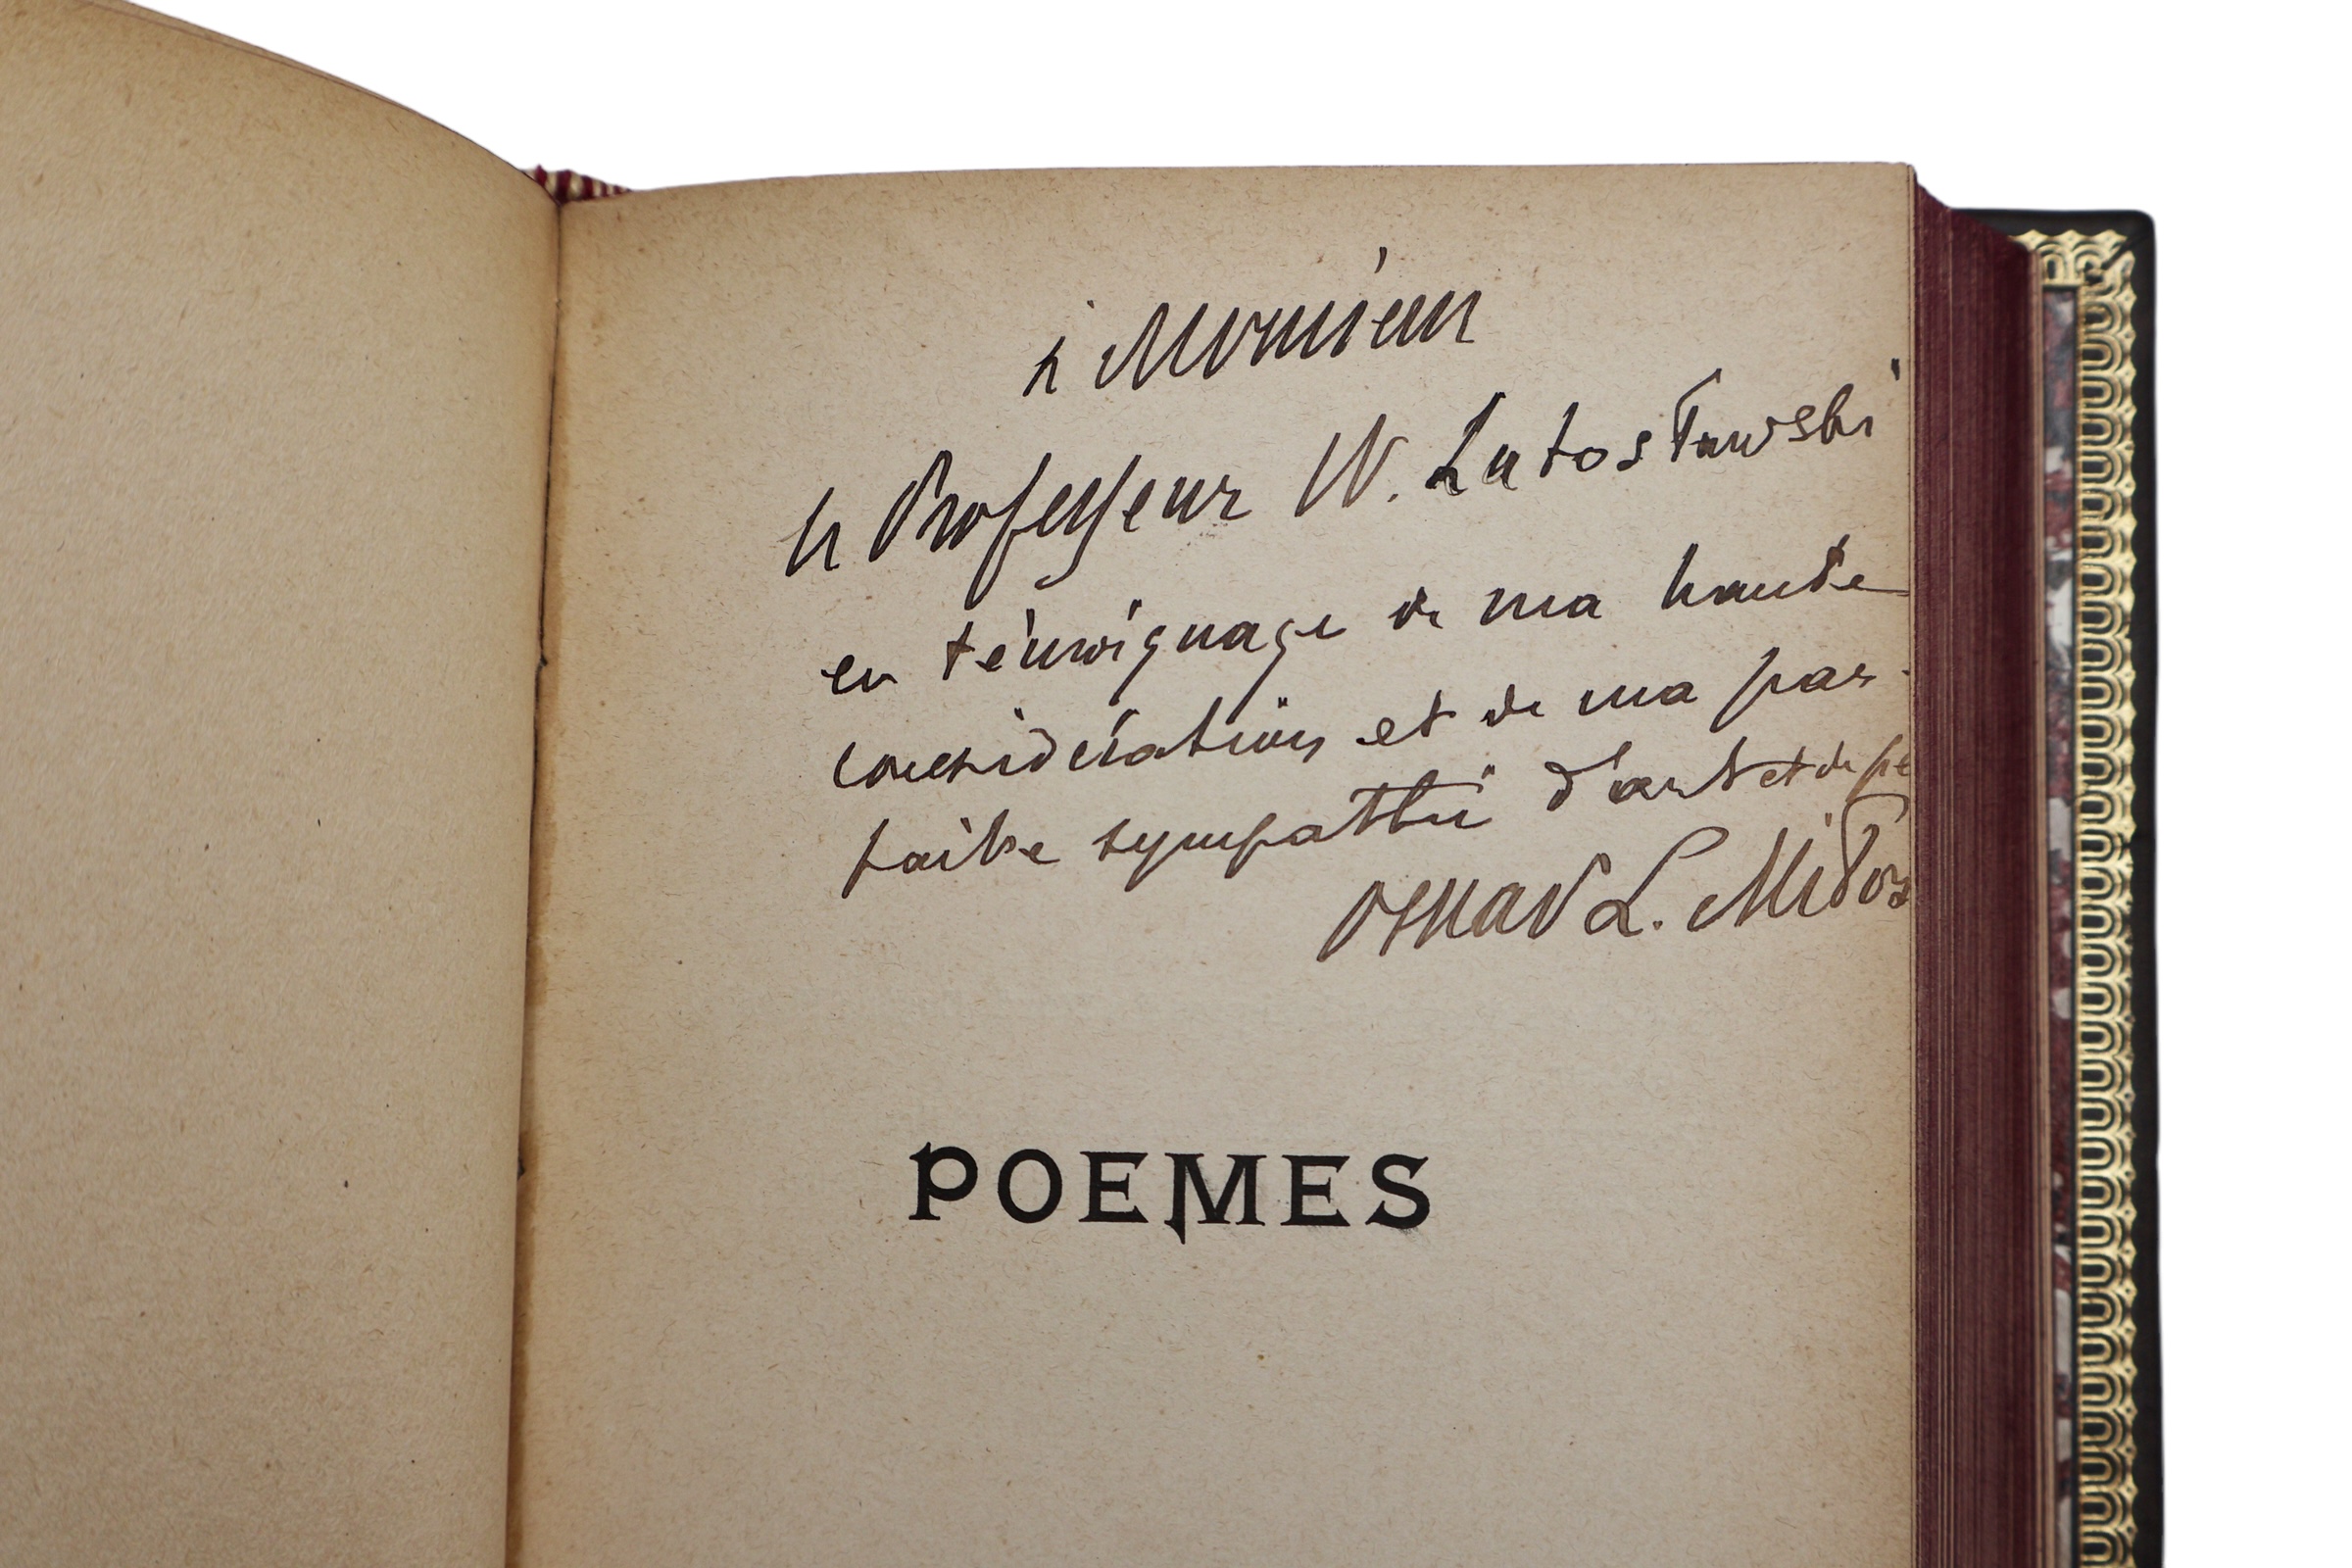 à Monsieur
le Professeur W. Lutosławski
en témoignage de ma haute
considération et de ma par-
faite sympathie d'art et de pe
OSKAR L. Milos
POEMES